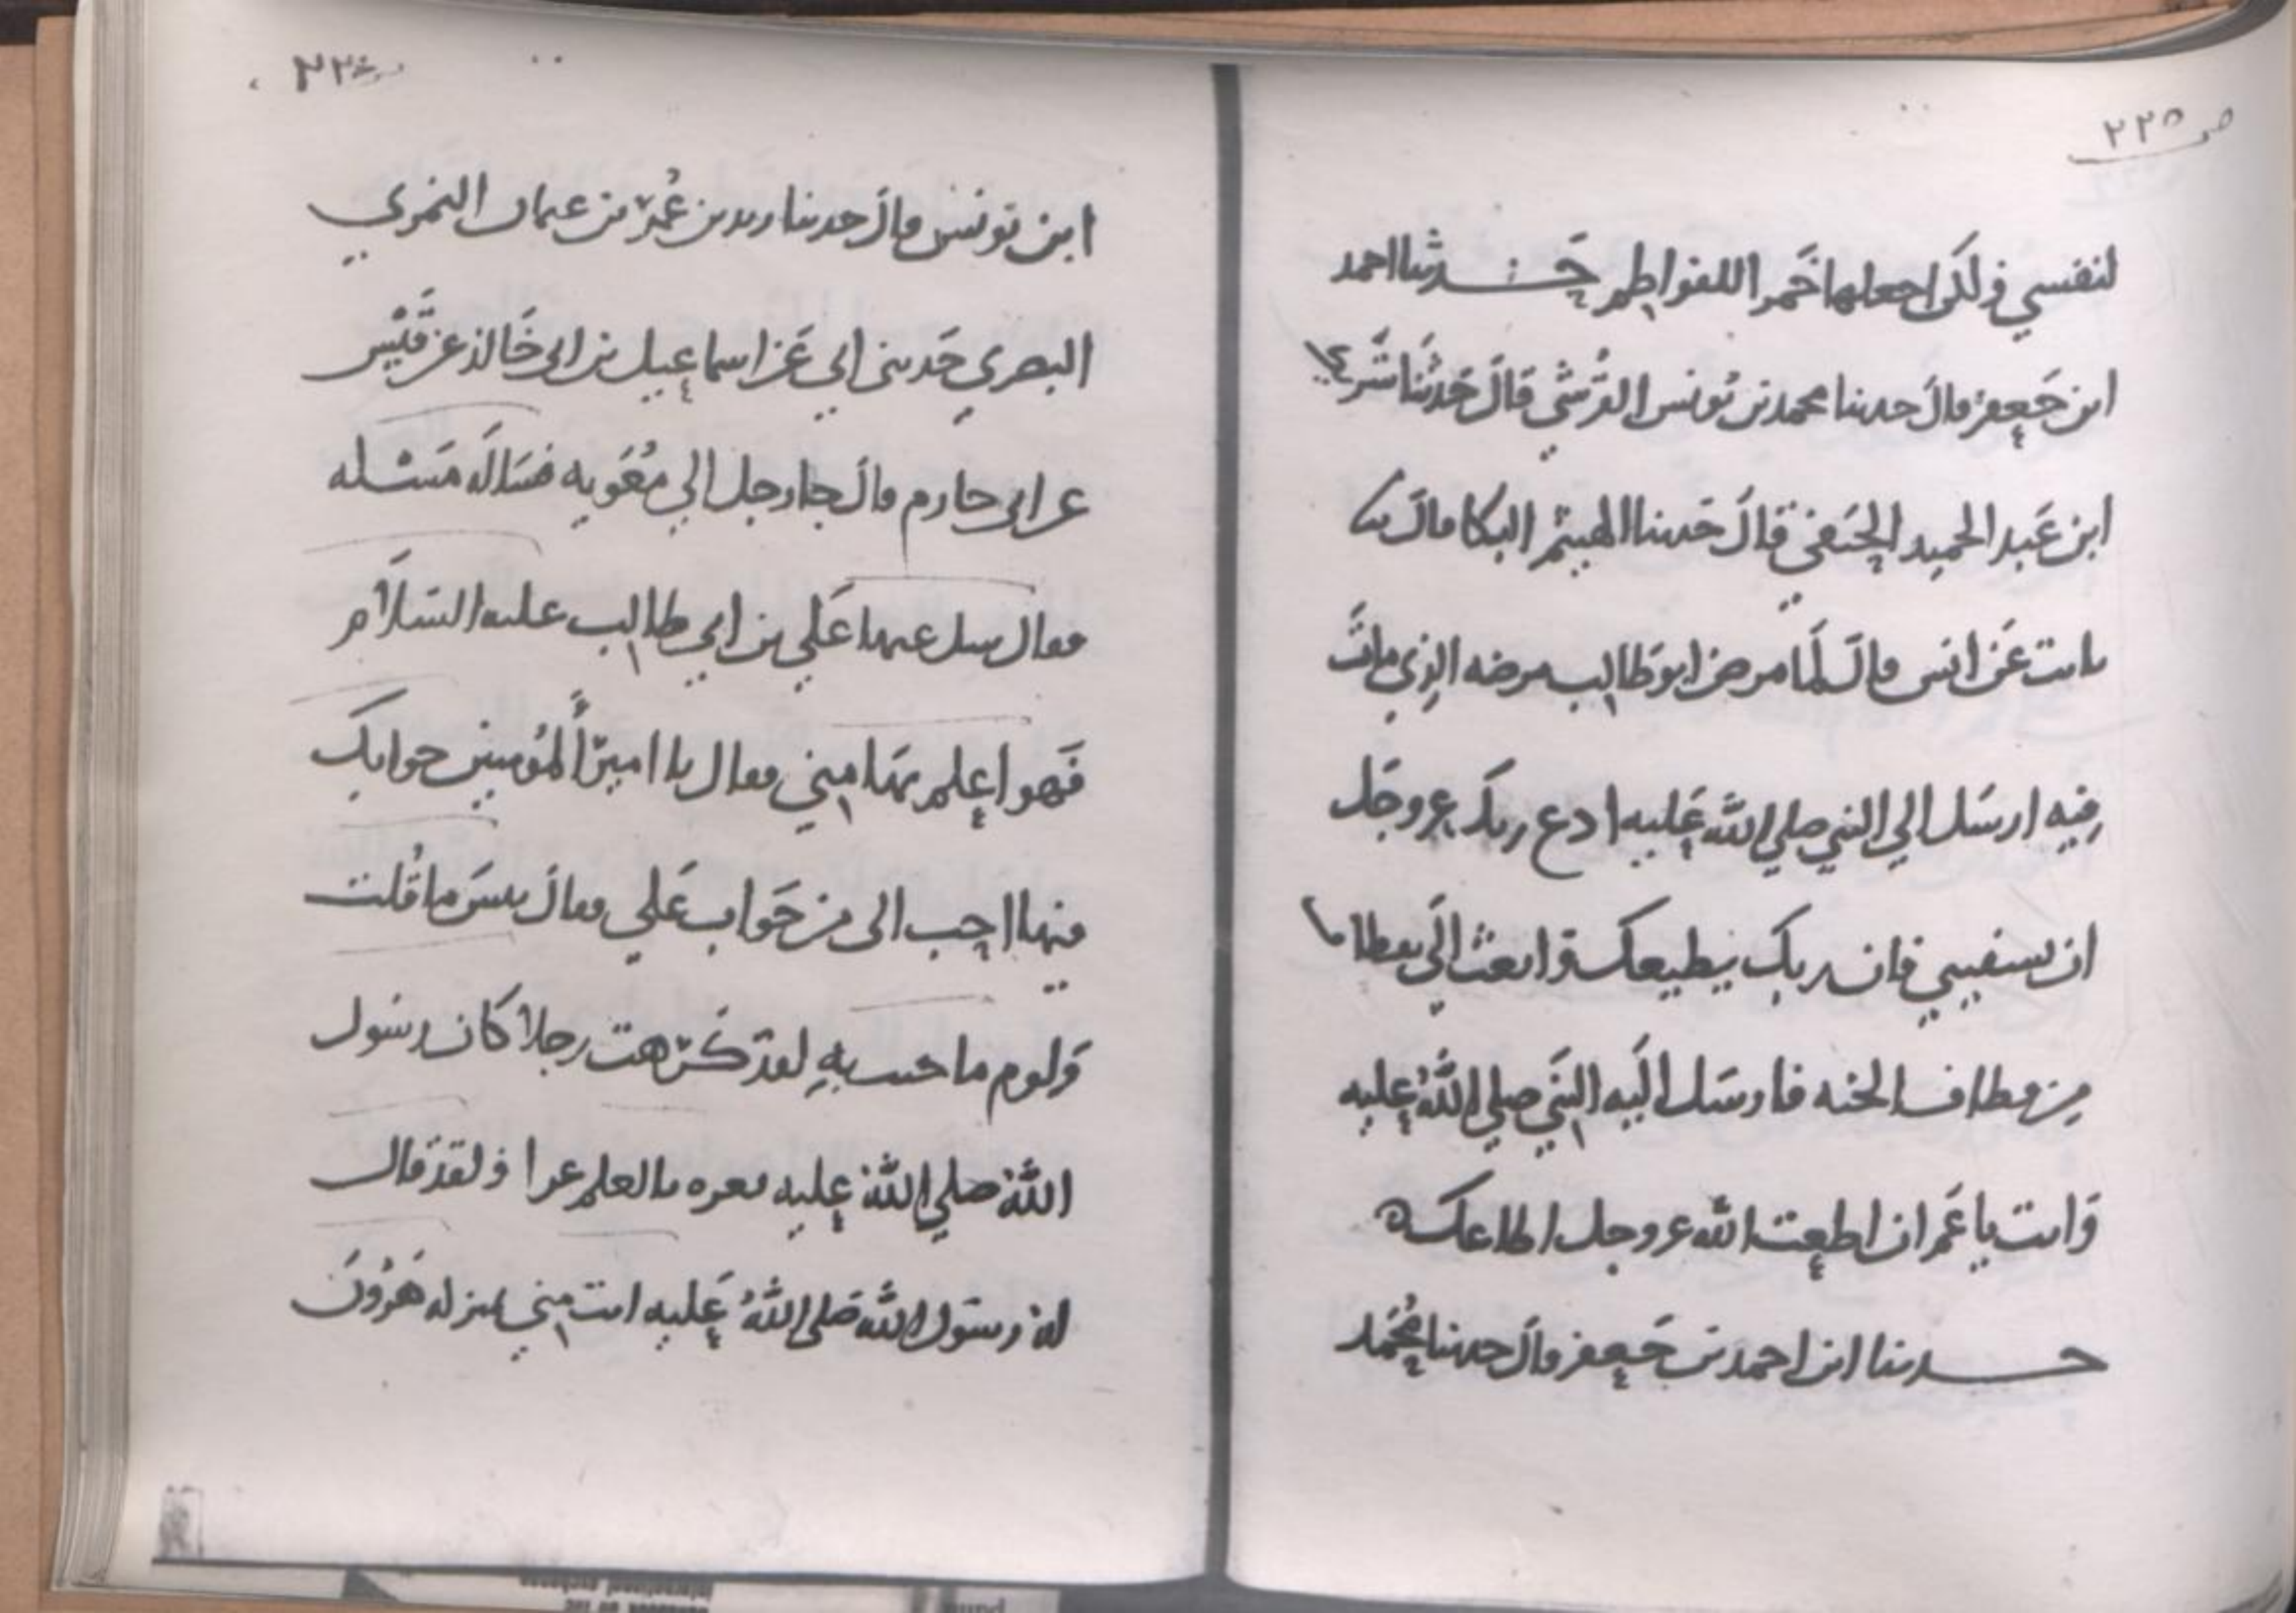 ص ٢٢٥
لنفسي ولكن اجعلها خمرا للفواطم حدثنا احمد
ابن جعفر قال حدثنا محمد بن يونس القرشي قال حدثنا شريك
ابن عبد الحميد الحنفي قال حدثنا الهيثم البكا قال حدثنا
ثابت عن انس قال لما مرض ابو طالب مرضه الذي مات
فيه ارسل الي النبي صلي الله عليه ادع ربك عز وجل
ان يشفيني فان ربك يطيعك وابعث الي بقطاف
من قطاف الجنه فارسل اليه النبي صلي الله عليه
وانت يا عم ان اطعت الله عز وجل اطاعك
حدثنا ابن احمد بن جعفر قال حدثنا محمد
ابن يونس قال حدثنا وهب بن عمر بن عثمان النمري
البصري حدثني ابي عن اسماعيل بن ابي خالد عن قيس
عن ابي حازم قال جا رجل الي معويه فساله مسئله
فقال سل عنها علي بن ابي طالب عليه السلام
فهو اعلم بها مني فقال يا امير المؤمنين جوابك
فيها احب الي من جواب علي فقال بيس ما قلت
ولوم ما جيت به لقد كرهت رجلا كان رسول
الله صلي الله عليه يغره بالعلم غرا ولقد قال
له رسول الله صلي الله عليه انت مني بمنزله هرون